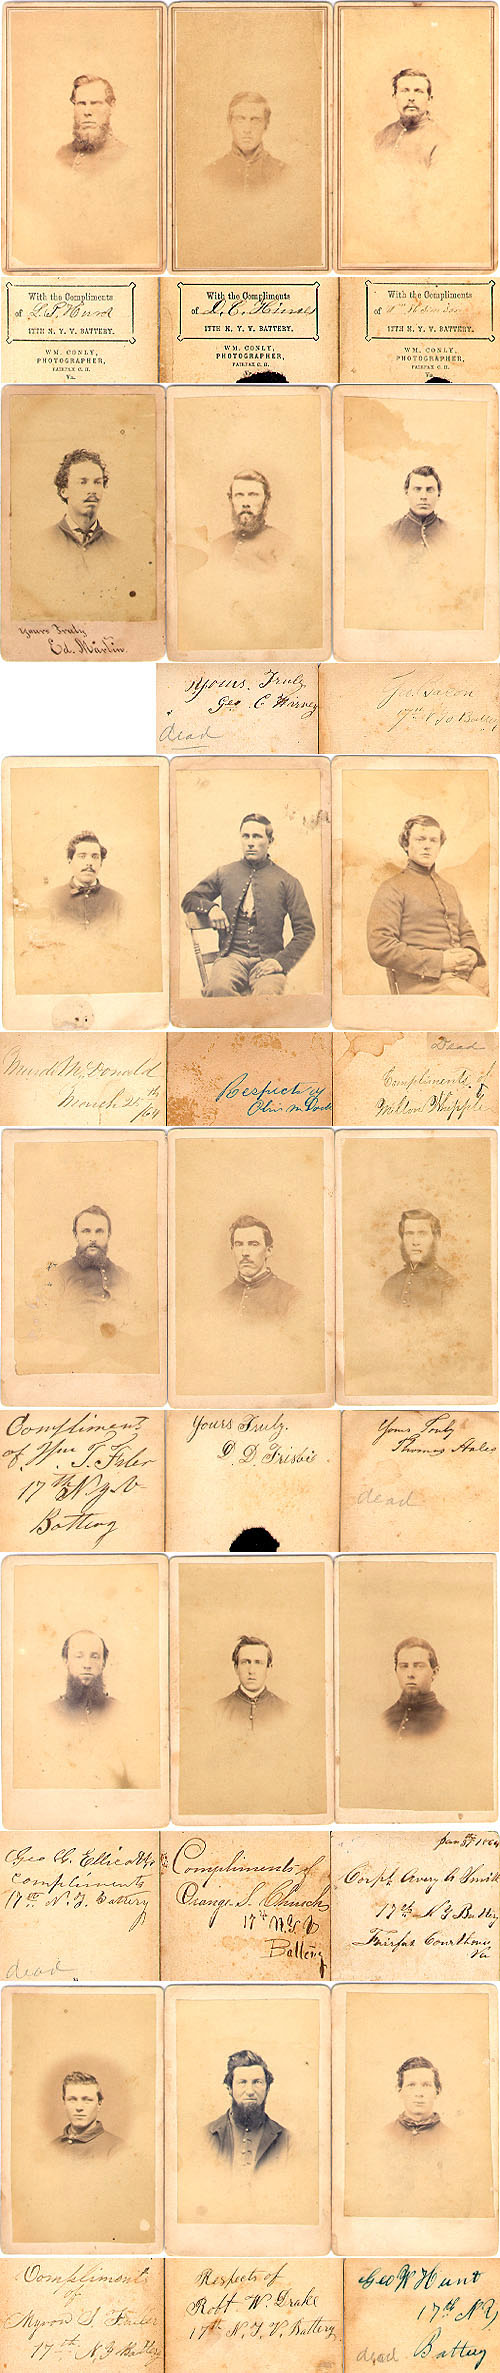 With the Compliments
of L. P. Hurd
17TH N. Y. V. BATTERY.
WM. CONLY,
PHOTOGRAPHER,
FAIRFAX C. H.
Va.
With the Compliments
of
17TH N. Y. V. BATTERY.
WM. CONLY,
PHOTOGRAPHER,
FAIRFAX C. H.
With the Compliments
of
17TH N. Y. V. BATTERY.
WM. CONLY,
PHOTOGRAPHER,
FAIRFAX C. H.
Va.
Yours Truly
Ed. Martin
Yours Truly
Geo. C.
dead
Bacon
17th N Yo Battery
McDonald
March 25th
/64
Respects of
Dead
Compliments of
Milton Whipple
Compliments
of Wm T.
17th N.Y.V
Battery
Yours Truly.
D. D. Frisbie
Yours Truly
Thomas Hales
dead
Geo G.
Compliments
17th N. Y. Battery
dead
Compliments of
Orange S. Church
17th N.Y.V
Battery
1864
Corpl. Avery A Smith
17th N Y Battery
Fairfax Courthouse
Va
Compliments
of
Myron S.
17th N. Y Battery
Respects of
Robt W. Drake
17th N. Y. V. Battery.
Geo W Hunt
17th N.Y.
dead Battery